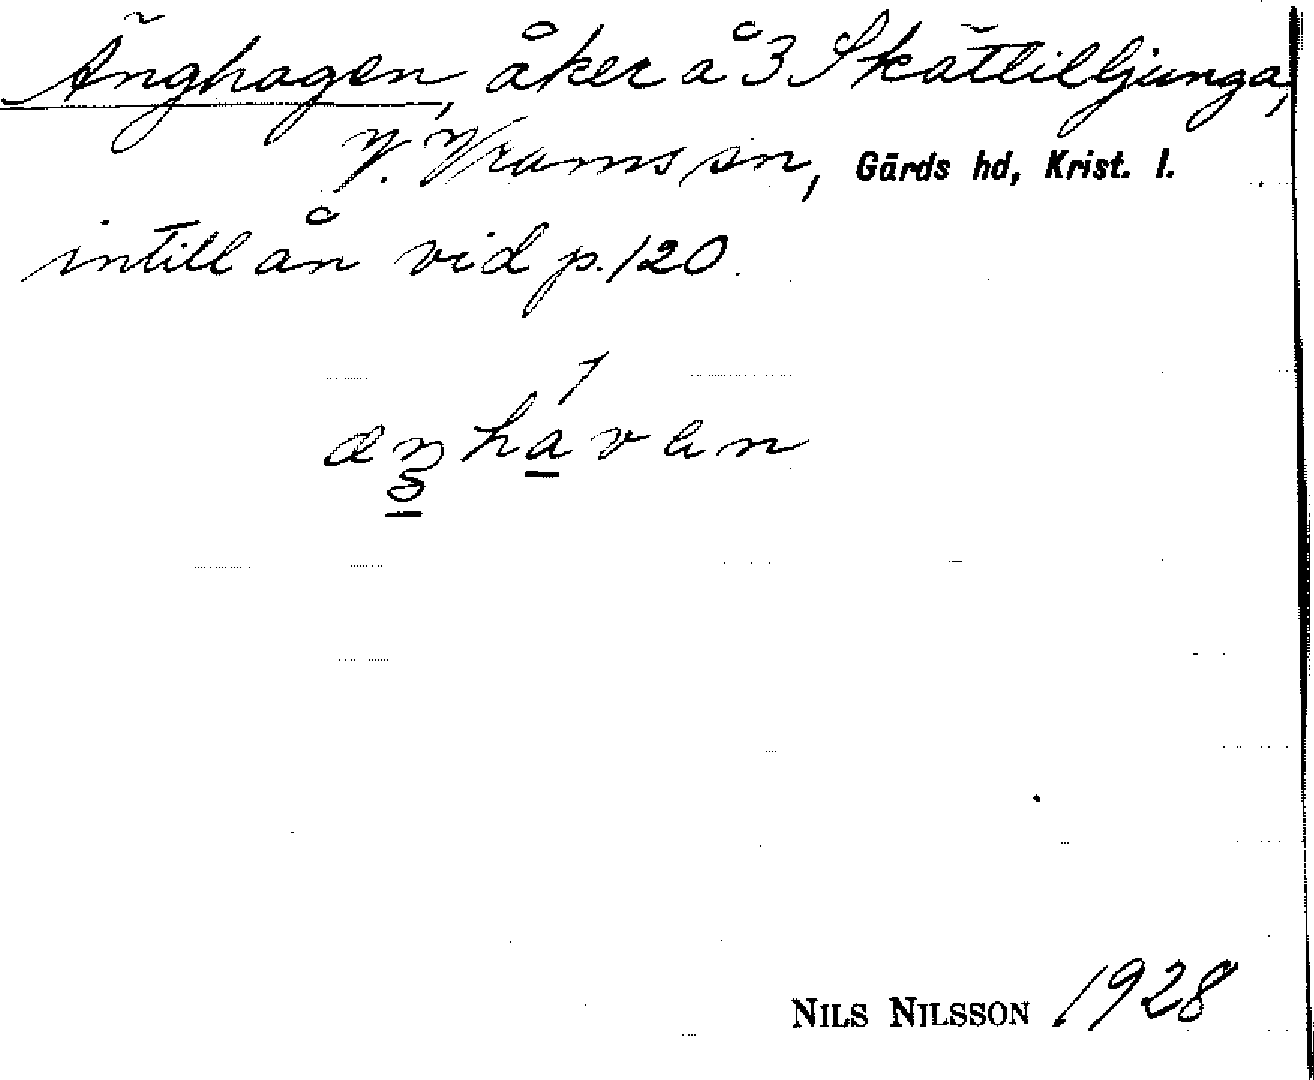 Änghagen, åker å 3 Skättilljunga,
V. Vrams sn, Gärds hd, Krist. l.
intill ån vid p. 120.
NILS NILSSON 1928